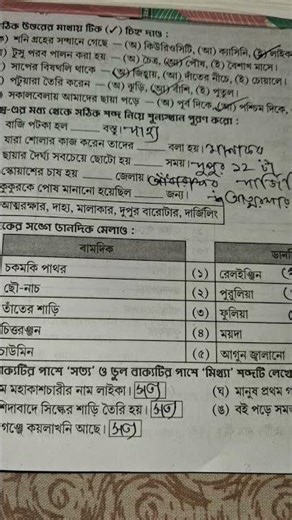 সঠিক উত্তরের মাথায় টিক (✓) চিহ্ন দাও :
শনি গ্রহের সন্ধানে গেছে — (অ) কিউরিওসিটি, (আ) ক্যাসিনি,
টুসু পরব পালন করা হয় — (অ) চৈত্র, পৌষ, (ই) বৈশাখ মাসে।
সাপের বিষথলি থাকে — (অ) জিহ্বায়, (আ) দাঁতের নীচে, (ই) চোয়ালে।
পটুয়ারা তৈরি করেন — (অ) ঝুড়ি, বাঁশি, (ই) পুতুল।
সকালবেলায় আমাদের ছায়া পড়ে — (অ) পূর্ব দিকে, পশ্চিম দিকে,
মধ্য থেকে সঠিক শব্দ নিয়ে শূন্যস্থান পূরণ করো :
বাজি পটকা হল বস্তু। দাহ্য
যারা শোলার কাজ করেন তাদের বলা হয়। মালাকার
ছায়ার দৈর্ঘ্য সবচেয়ে ছোটো হয় সময়। দুপুর ১২ টা
স্কোয়াশের চাষ হয় জেলায়
কুকুরকে পোষ মানানো হয়েছিল জন্য।
আত্মরক্ষার, দাহ্য, মালাকার, দুপুর বারোটার, দার্জিলিং
সঙ্গে ডানদিক মেলাও :
বামদিক
চকমকি পাথর (১) রেলইঞ্জিন
ছৌ-নাচ (২) পুরুলিয়া
তাঁতের শাড়ি (৩) ফুলিয়া
চিত্তরঞ্জন (৪) ময়দা
চাউমিন (৫) আগুন জ্বালানো
বাক্যটির পাশে 'সত্য' ও ভুল বাক্যটির পাশে 'মিথ্যা' শব্দটি লেখো
মহাকাশচারীর নাম লাইকা। সত্য (ঘ) মানুষ প্রথম
সিল্কের শাড়ি তৈরি হয়। সত্য (ঙ) বই পড়ে
কয়লাখনি আছে। সত্য